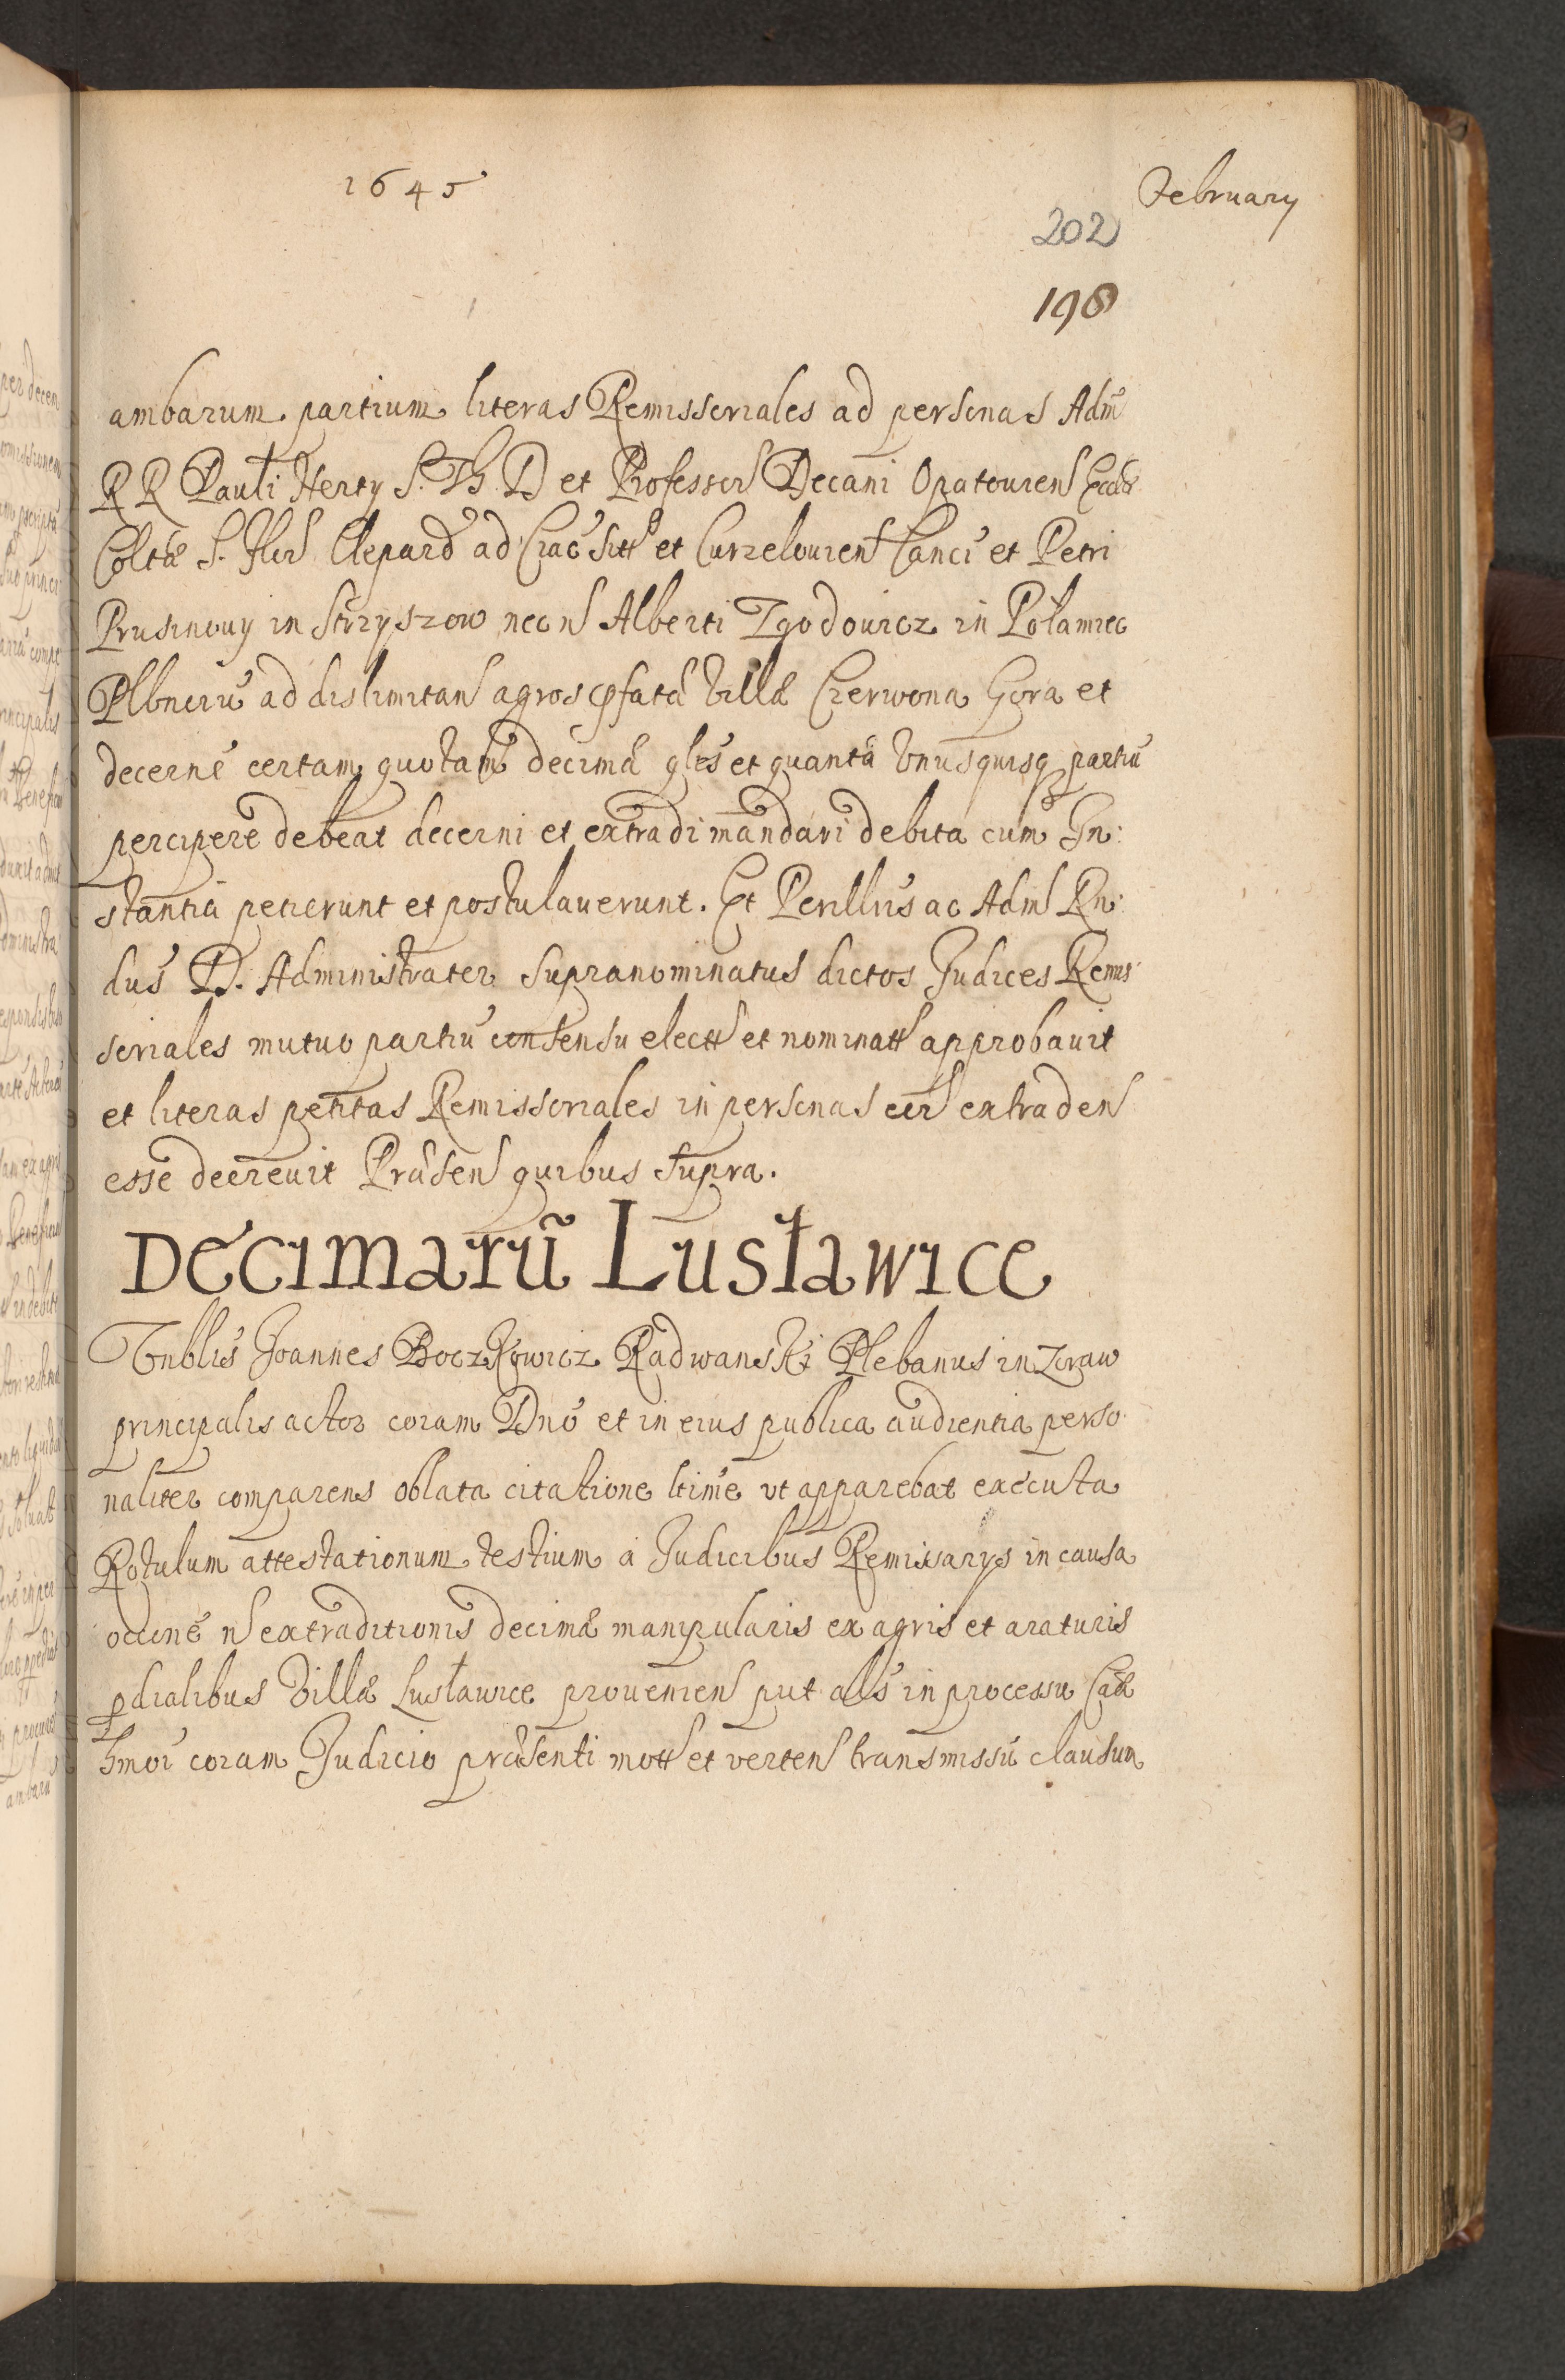 1645
February
202
198
ambarum partium literas Remissoriales ad personas Adm
RR Pauli Herty S. Th. D et Professor Decani Opatouien Eccliæ
Coltæ S. Flor Clepard ad Crac sitt et Curzelouien Canci et Petri
Prusinouy in Strzyszow necn Alberti Zgodowicz in Połaniec
Plbnorū ad dislimitan agros pfatæ Villæ Czerwona Gora et
decerne certam quotam decimæ qles et quantā Vnusquisq partiū
percipere debeat decerni et extradi mandari debita cum In:
stantia petierunt et postulauerunt. Et Perillris ac Adm Rn:
dus D. Administrator Supranominatus dictos Judices Remis
soriales mutuo partiū consensu electt et nominatt approbauit
et literas petitas Remissoriales in personas eor extraden
esse decreuit Præsen quibus supra.
Decimarū Lusławice
Vnblis Joannes Boczkowicz Radwanski Plebanus in Zoraw
principalis actor coram Dno et in eius publica audientia perso
naliter comparens oblata citatione ltime vt apparebat executa
Rotulum attestationum testium a Judicibus Remissarys in causa
occone n extraditionis decimæ manipularis ex agris et araturis
pdialibus Villæ Lusławice prouenien put als in processu Cæ
hmoi coram Judicio præsenti mott et verten transmissū clausum